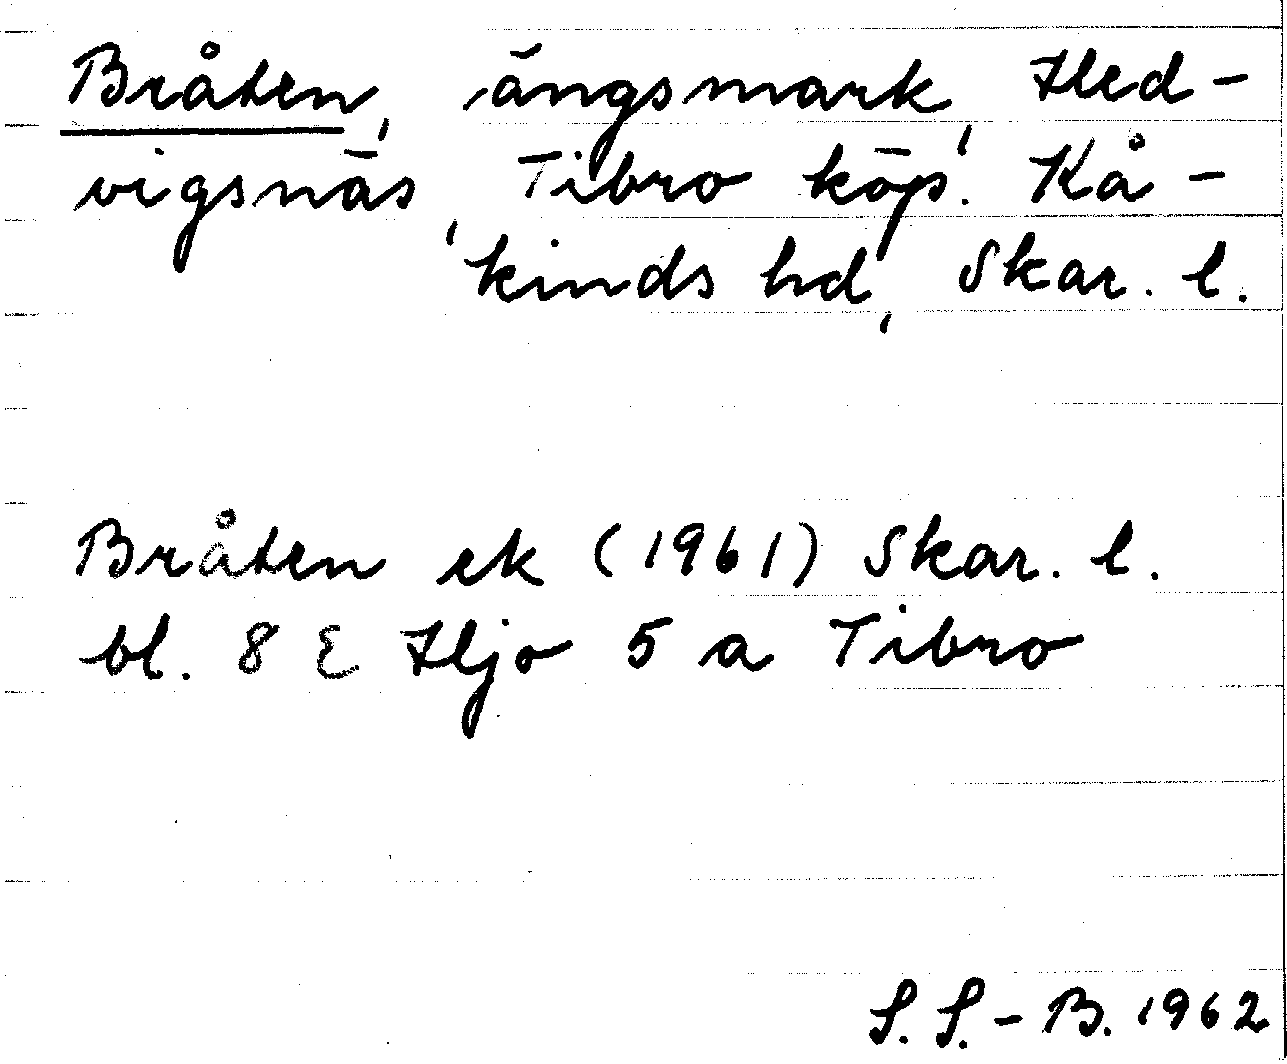 Bråten, ängsmark, Hed-
vigsnäs, Tibro köp. Kå-
kinds hd, Skar. l.
Bråten ek (1961) Skar. l.
bl. 8 E Hjo 5 a Tibro
S. S. - B. 1962